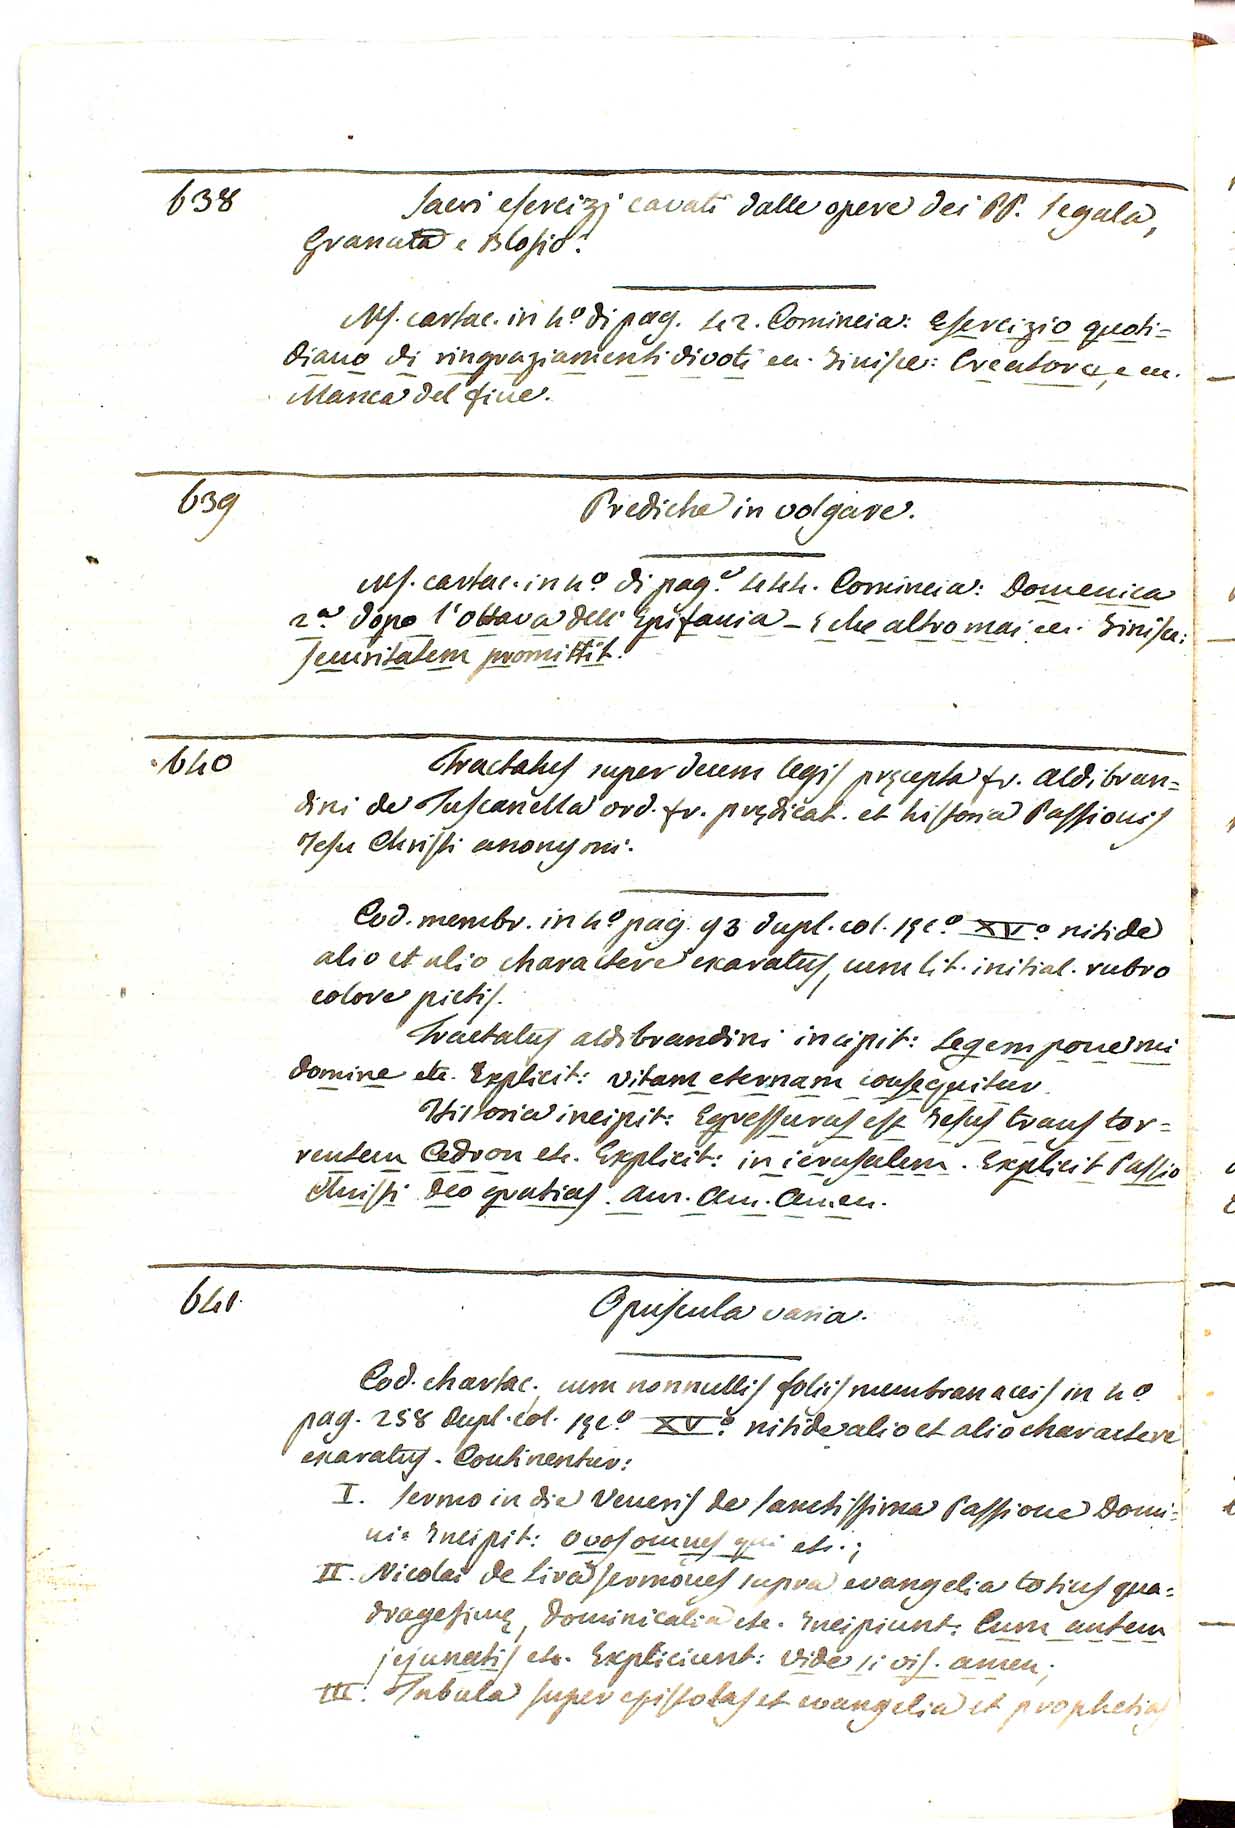 638
Sacri esercizj cavati dalle opere dei PP. Segala,
Granata e Blosio.
Ms. cartac. in 4º di pag. 42. Comincia: Esercizio quoti=
diano di ringraziamenti divoti ec. Finisce: Creatore, e ec.
Manca del fine.
639
Prediche in volgare.
Ms. cartac. in 4º di pag.e 444. Comincia: Domenica
2.a dopo l'ottava dell'Epifania – E che altro mai ec. Finisce:
securitatem promittit.
640
Tractatus super decem legis præcepta fr. Aldibran=
dini de Tuscanella ord. fr. prædicat. et historia Passionis
Jesu Christi anonymi.
Cod. membr. in 4º pag. 93 dupl. col. sęc.º XV.º nitide
alio et alio charactere exaratus, cum lit. initial. rubro
colore pictis.
Tractatus aldibrandini incipit: Legem pone mi
domine etc. Explicit: vitam eternam consequitur.
Historia incipit: Egressurus est Jesus trans tor=
rentem Cedron etc. Explicit: in ierusalem. Explicit Passio
Christi deo gratias. am. am. amen.
641.
Opuscula varia.
Cod. chartac., cum nonnullis foliis membranaceis in 4º
pag. 258 dupl. col. sęc.º XV.º nitide alio et alio charactere
exaratus. Continentur:
I. Sermo in die Veneris de sanctissima Passione Domi=
ni. Incipit: O vos omnes qui etc.;
II. Nicolai de Lira sermones supra evangelia totius qua=
dragesimę, dominicalia etc. Incipiunt: Cum autem
jejunatis etc. Expliciunt: vide si vis. amen;
III. Tabula super epistolas et evangelia et prophetias